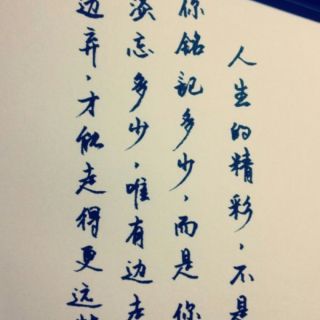 人生的精彩，不是
你铭記多少，而是你
淡忘多少，唯有边走
边弃，才能走得更远